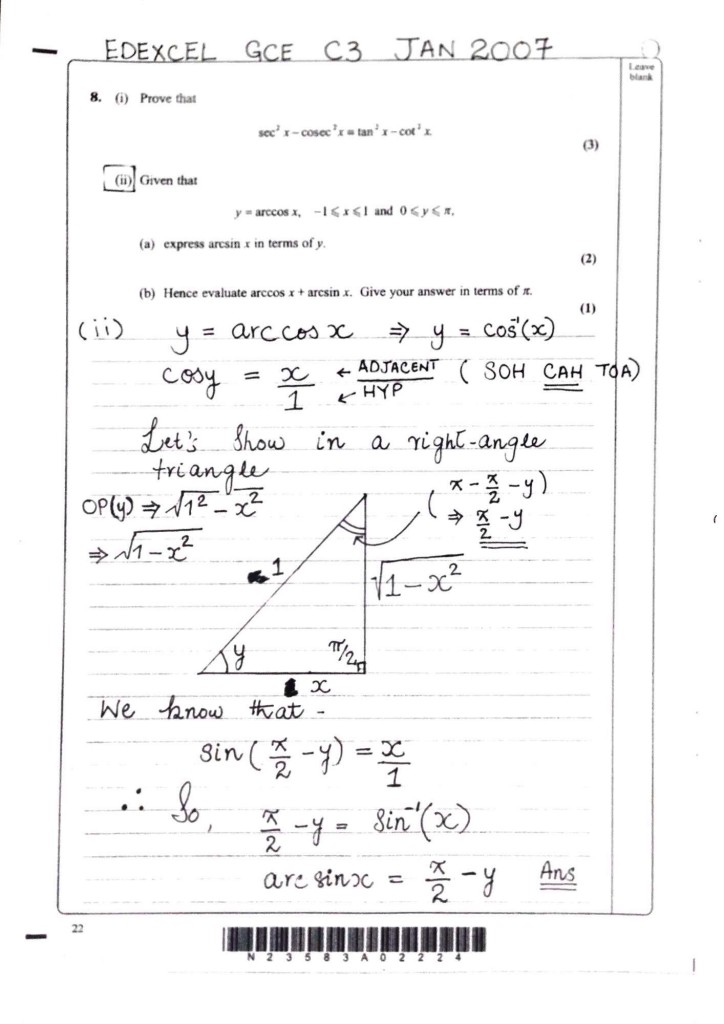 EDEXCEL GCE C3 JAN 2007
Leave
blank
8. (i) Prove that
sec² x – cosec² x ≡ tan² x – cot² x.
(3)
(ii) Given that
y = arccos x, –1 ⩽ x ⩽ 1 and 0 ⩽ y ⩽ π,
(a) express arcsin x in terms of y.
(2)
(b) Hence evaluate arccos x + arcsin x. Give your answer in terms of π.
(1)
(ii) y = arccos x ⇒ y = cos⁻¹(x)
cosy = x/1 ← ADJACENT ← HYP (SOH CAH TOA)
Let's show in a right-angle
triangle
OP(y) ⇒ √1² – x²
⇒ √1 – x²
(π – π/2 – y)
⇒ π/2 – y
1
√1 – x²
y
π/2
x
We know that –
sin(π/2 – y) = x/1
∴ So, π/2 – y = sin⁻¹(x)
arc sinx = π/2 – y Ans
22
N23583A02224